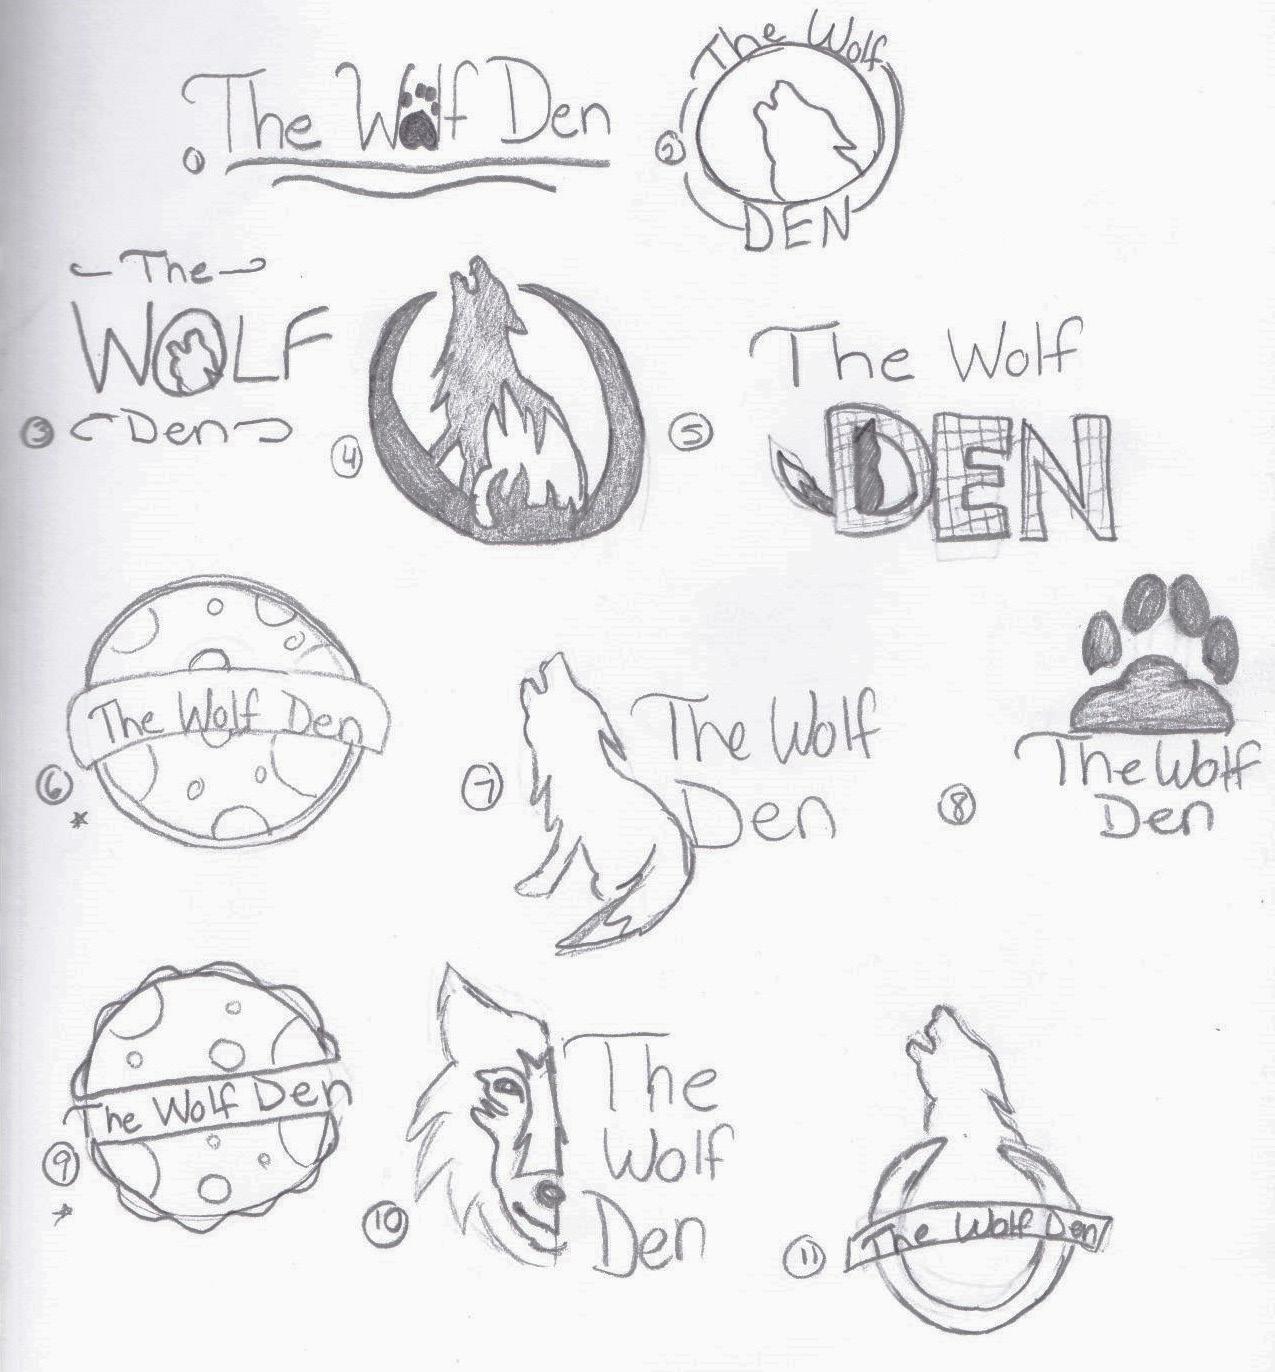 The Wolf Den
1
The Wolf
2
DEN
The
WOLF
3 Den
4
5
The Wolf
DEN
The Wolf Den
6
*
7
The Wolf
Den
8
The Wolf
Den
The Wolf Den
9
*
10
The
Wolf
Den
11
The Wolf Den